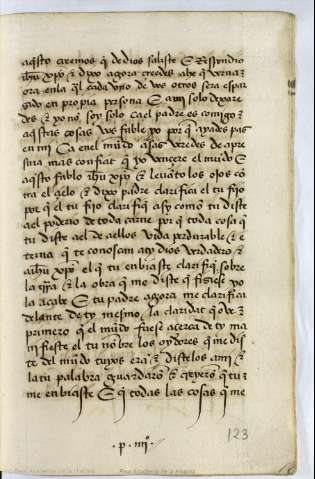 aq̃sto creemos q̃ de dios saliste E Respondio
ih̃u xp̃o & dixo agora creedes ahe q̃ verna
ora en la q̃l cada vno de vos otros sera espar
gido en propia persona E a mi solo dexare
des & yo nõ soy solo Ca el padre es comigo
aq̃stas cosas vos fable yo por q̃ ayades pas
en mi Ca en el mũdo avredes de apre
tura mas confiat q̃ yo vencere el mũdo E
aq̃sto fablo ih̃u xp̃o & leuãto los ojos cõ
tra el çielo & dixo padre clarifica el tu fijo
por q̃ el tu fijo clarifiq̃ a ty como tu diste
a el poderio de toda carne por q̃ toda cosa q̃
tu diste a el de a ellos vida perdurable & e
terna q̃ te conoscan a ty dios verdadero &
a ih̃u xp̃o el q̃ tu enbiaste clarifiq̃ sobre
la tr̃ra & la obra q̃ me diste q̃ fiziese yo
la acabe E tu padre agora me clarifica
delante de ty mesmo la claridat q̃ oue
primero q̃ el mũdo fuese acerca de ty ma
nifieste el tu nõbre los oydores q̃ me dis
te del mũdo tuyos erã & distelos a mi &
la tu palabra guardarõ & creyerõ q̃ tu
me enbiaste E q̃ todas las cosas q̃ me
· p · iiij ·
123
Real Academia de la Historia